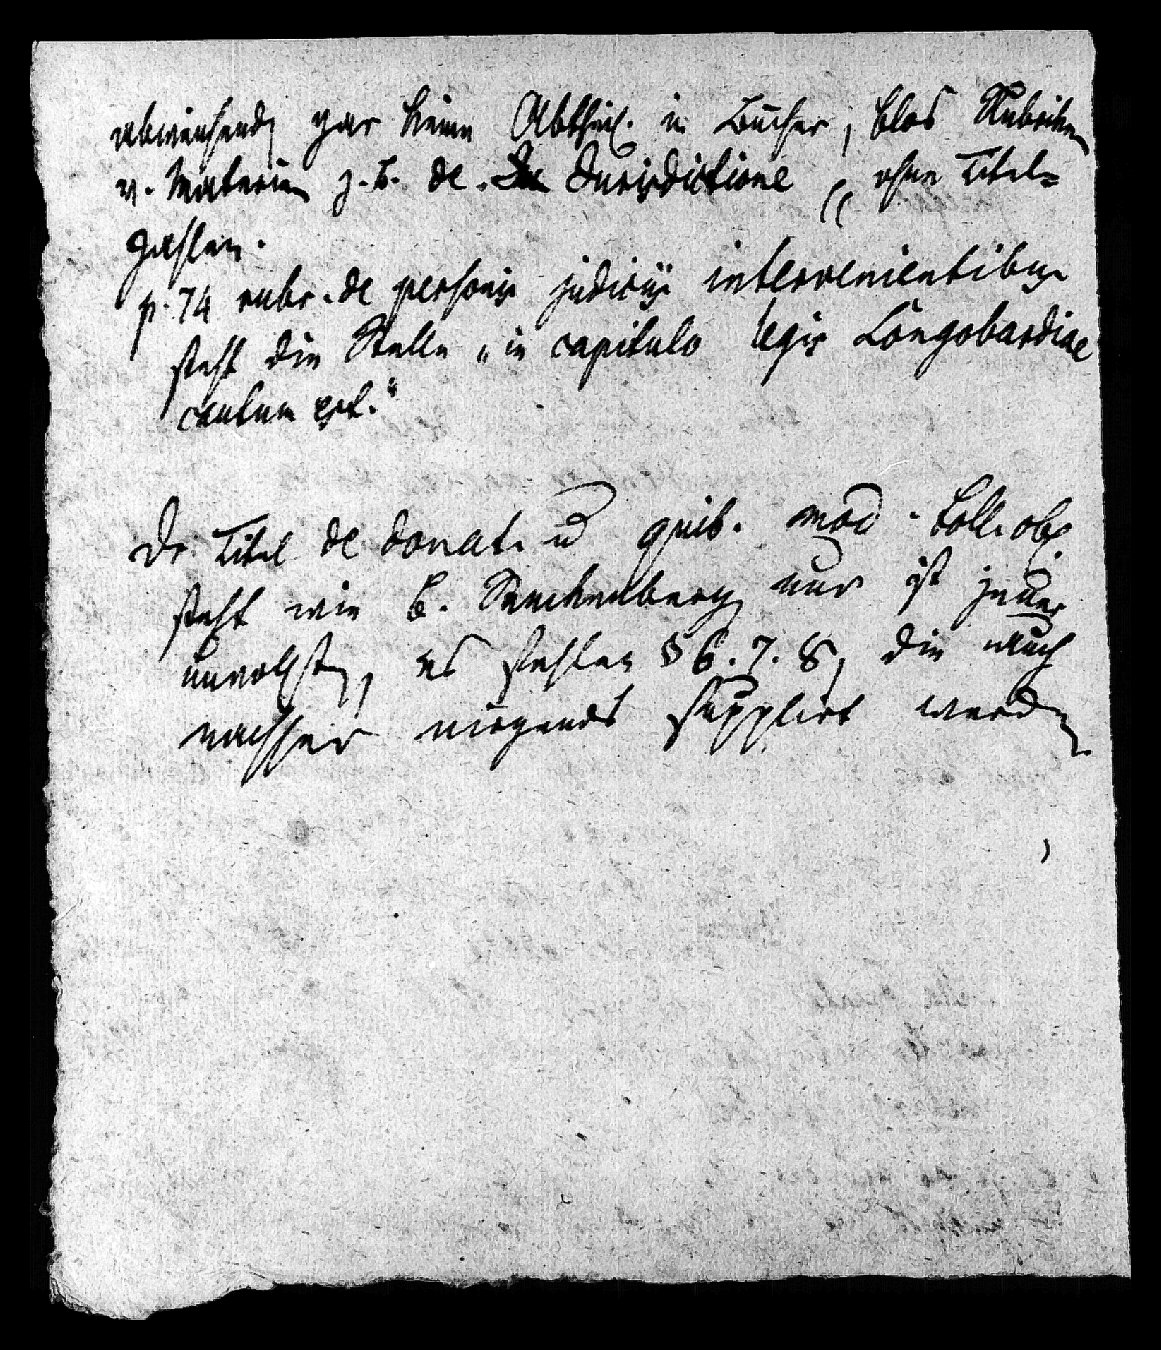 abweichend, gar keine Abtheil. in Bücher, blos Rubriken
v. Materien z. B. de Jurisdictione, ohne Titel-
zahlen.
p. 74 rubr. de personis judiciis intervenientibus
steht die Stelle „in capitulo legis Longobardiae
cautum est."
Dr Titel de donat. u quib. mod. toll. obl.
steht wie b. Senckenberg nur ist jener
unvollst, es fehlen § 6. 7. 8, die auch
nachher nirgends supplirt werden